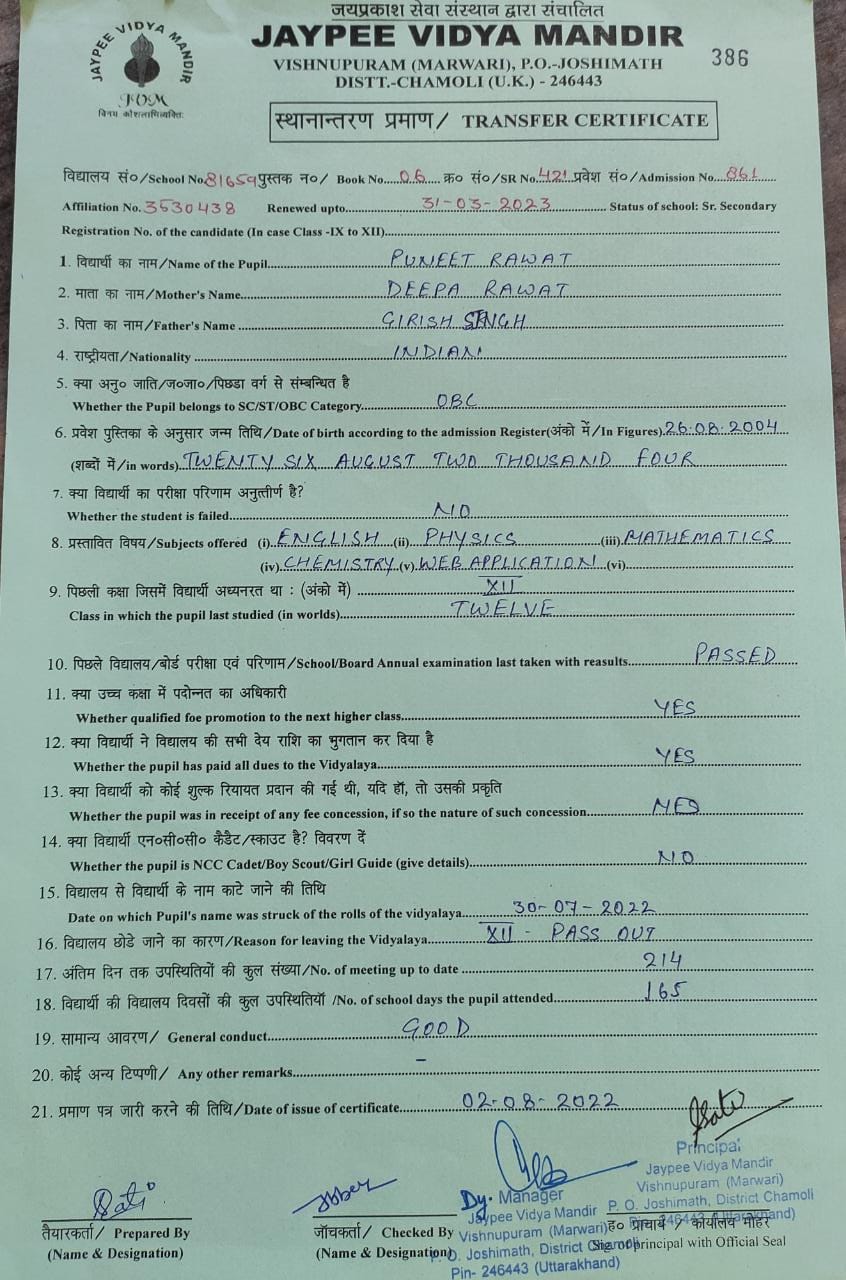 जयप्रकाश सेवा संस्थान द्वारा संचालित
JAYPEE VIDYA MANDIR
JAYPEE VIDYA MANDIR
386
VISHNUPURAM (MARWARI), P.O.-JOSHIMATH
DISTT.-CHAMOLI (U.K.) - 246443
स्थानान्तरण प्रमाण/ TRANSFER CERTIFICATE
विद्यालय सं०/School No. 81659 पुस्तक न०/ Book No. 06 क्र० सं०/SR No. 421 प्रवेश सं०/Admission No. 861
Affiliation No. 3530438 Renewed upto 31-03-2023 Status of school: Sr. Secondary
Registration No. of the candidate (In case Class -IX to XII)
1. विद्यार्थी का नाम/Name of the Pupil PUNEET RAWAT
2. माता का नाम/Mother's Name DEEPA RAWAT
3. पिता का नाम/Father's Name GIRISH SINGH
4. राष्ट्रीयता/Nationality INDIAN
5. क्या अनु० जाति/ज०जा०/पिछडा वर्ग से संम्बन्धित है
Whether the Pupil belongs to SC/ST/OBC Category OBC
6. प्रवेश पुस्तिका के अनुसार जन्म तिथि/Date of birth according to the admission Register(अंको में/In Figures) 26.08.2004
(शब्दों में/in words) TWENTY SIX AUGUST TWO THOUSAND FOUR
7. क्या विद्यार्थी का परीक्षा परिणाम अनुत्तीर्ण है?
Whether the student is failed NO
8. प्रस्तावित विषय/Subjects offered (i) ENGLISH (ii) PHYSICS (iii) MATHEMATICS
(iv) CHEMISTRY (v) WEB APPLICATION (vi)
9. पिछली कक्षा जिसमें विद्यार्थी अध्यनरत था : (अंको में) XII
Class in which the pupil last studied (in worlds) TWELVE
10. पिछले विद्यालय/बोर्ड परीक्षा एवं परिणाम/School/Board Annual examination last taken with reasults PASSED
11. क्या उच्च कक्षा में पदोन्नत का अधिकारी
Whether qualified foe promotion to the next higher class YES
12. क्या विद्यार्थी ने विद्यालय की सभी देय राशि का भुगतान कर दिया है
Whether the pupil has paid all dues to the Vidyalaya YES
13. क्या विद्यार्थी को कोई शुल्क रियायत प्रदान की गई थी, यदि हॉं, तो उसकी प्रकृति
Whether the pupil was in receipt of any fee concession, if so the nature of such concession
14. क्या विद्यार्थी एन०सी०सी० कैडैट/स्काउट है? विवरण दें
Whether the pupil is NCC Cadet/Boy Scout/Girl Guide (give details) NO
15. विद्यालय से विद्यार्थी के नाम काटे जाने की तिथि
Date on which Pupil's name was struck of the rolls of the vidyalaya 30-07-2022
16. विद्यालय छोडे जाने का कारण/Reason for leaving the Vidyalaya XII - PASS OUT
17. अंतिम दिन तक उपस्थितियों की कुल संख्या/No. of meeting up to date 214
18. विद्यार्थी की विद्यालय दिवसों की कुल उपस्थितियॉं /No. of school days the pupil attended 165
19. सामान्य आवरण/ General conduct GOOD
20. कोई अन्य टिप्पणी/ Any other remarks –
21. प्रमाण पत्र जारी करने की तिथि/Date of issue of certificate 02-08-2022
Principal
Jaypee Vidya Mandir
Vishnupuram (Marwari)
P. O. Joshimath, District Chamoli
Pin- 246443 (Uttarakhand)
Dy. Manager
Jaypee Vidya Mandir
Vishnupuram (Marwari)
P. O. Joshimath, District Chamoli
Pin- 246443 (Uttarakhand)
तैयारकर्ता/ Prepared By
(Name & Designation)
जॉचकर्ता/ Checked By
(Name & Designation)
ह० प्राचार्य / कार्यालय मोहर
Sig. of principal with Official Seal